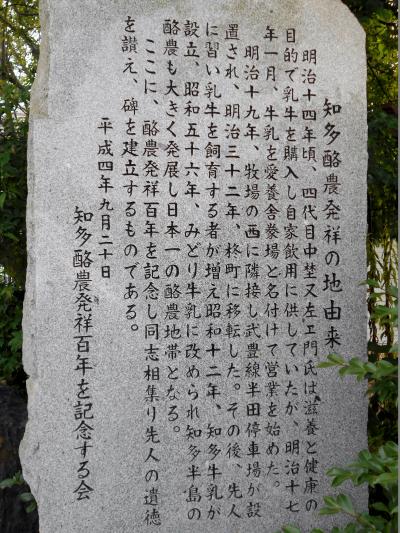 知多酪農発祥の地由来
明治十四年頃、四代目中埜又左エ門氏は、滋養と健康の
目的で乳牛を購入し自家飲用に供していたが、明治十七
年一月、牛乳を愛養舎豢場と名付けて営業を始めた。
明治十九年、牧場の西に隣接し武豊線半田停車場が設
置され、明治三十二年、柊町に移転した。その後、先人
に習い乳牛を飼育する者が増え昭和十二年、知多牛乳が
設立、昭和五十六年、みどり牛乳に改められ知多半島の
酪農も大きく発展し日本一の酪農地帯となる。
ここに、酪農発祥百年を記念し同志相集り先人の遺徳
を讃え、碑を建立するものである。
平成四年九月二十日
知多酪農発祥百年を記念する会